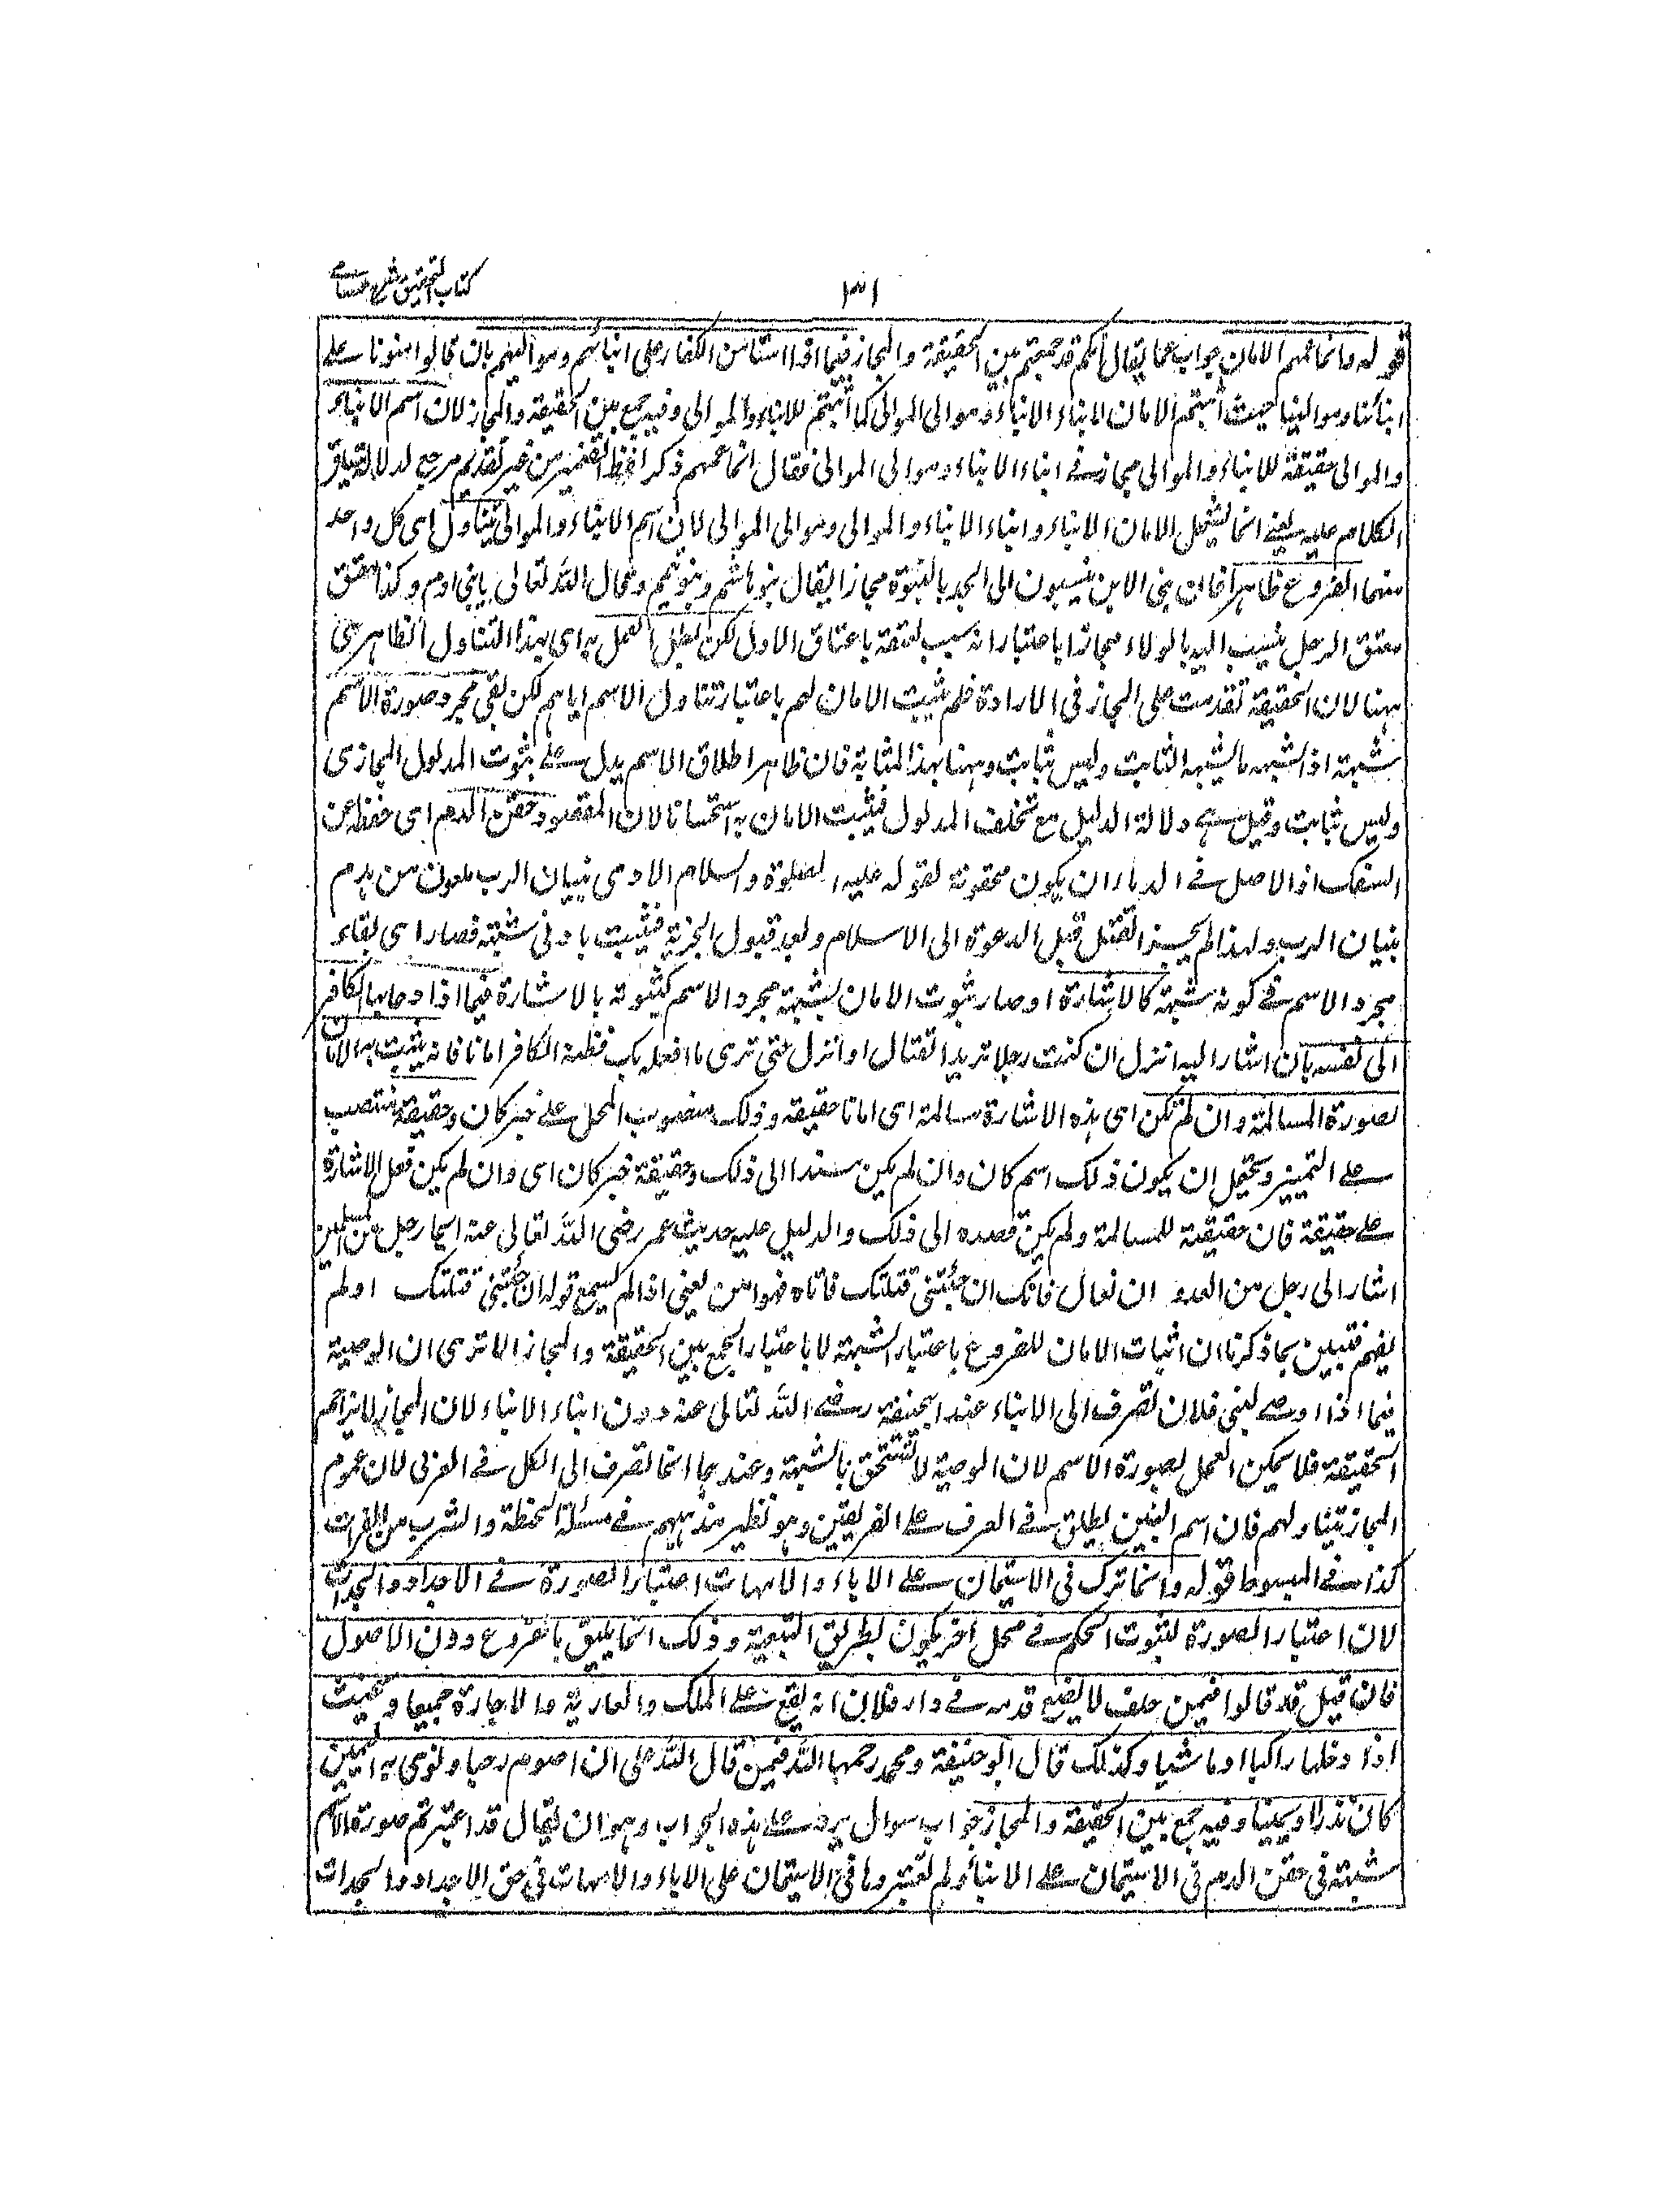 كتاب التحقيق شرح حسامي
١٣١
قوله وانما عمهم الامان جواب عما يقال انكم قد جمعتم بين الحقيقة والمجاز فيما اذا استامن الكفار على ابنائهم ومواليهم بان قالوا امنونا على
ابنائنا وموالينا حيث اثبتم الامان لابناء الابناء وموالى الموالى كما اثبتم للابناء والموالى وفيه جمع بين الحقيقة والمجاز لان اسم الابناء
والموالى حقيقة للابناء والموالى مجاز فى ابناء الابناء وموالى الموالى فقال انما عمهم ذكر لفظ الضمير من غير تقديم مرجع لدلالة سياق
الكلام عليه يعنى انما يشمل الامان الابناء وابناء الابناء والموالى وموالى الموالى لان اسم الابناء والموالى يتناول اى كل واحد
منهما الفروع ظاهرا فان بنى الابن ينسبون الى الجد بالبنوة مجازا يقال بنو هاشم وبنو تميم وقال الله تعالى يابنى ادم وكذا معتق
معتق الرجل ينسب اليه بالولاء مجازا باعتبار انه سبب لعتقه باعتاق الاول لكن بطل العمل به اى بهذا التناول الظاهرى
ههنا لان الحقيقة تقدمت على المجاز فى الارادة فلم يثبت الامان لهم باعتبار تناول الاسم اياهم لكن بقى مجرد صورة الاسم
شبهة اذ الشبهة ما يشبه الثابت وليس بثابت وههنا بهذا المثابة فان ظاهر اطلاق الاسم يدل على ثبوت المدلول المجازى
وليس بثابت وقيل هى دلالة الدليل مع تخلف المدلول فيثبت الامان به استحسانا لان المقصود حقن الدم اى حفظه عن
السفك اذ الاصل فى الدماء ان يكون محقونة لقوله عليه الصلوة والسلام الادمى بنيان الرب ملعون من هدم
بنيان الرب ولهذا لم يجز القتل قبل الدعوة الى الاسلام وبعد قبول الجزية فيثبت بادنى شبهة فصار اى بقاء
مجرد الاسم فى كونه شبهة كالاشارة او صار ثبوت الامان بشبهة مجرد الاسم كثبوته بالاشارة فيما اذا دعا بها الكافر
الى نفسه بان اشار اليه انزل ان كنت رجلا تريد القتال او انزل حتى ترى ما افعله بك فظنه الكافر امانا فانه يثبت به الامان
لصورة المسالمة وان لم تكن اى هذه الاشارة مسالمة اى امانا حقيقة وذلك منصوب المحل على خبر كان وحقيقة منتصب
على التمييز ويحتمل ان يكون ذلك اسم كان وان لم يكن مسندا الى ذلك وحقيقة خبر كان اى وان لم يكن فعل الاشارة
على حقيقة فان حقيقته للمسالمة ولم يكن قصده الى ذلك والدليل عليه حديث عمر رضى الله تعالى عنه ايما رجل من المسلمين
اشار الى رجل من العدو ان تعال فانك ان جئتنى قتلتك فاتاه فهو امن يعنى اذا لم يسمع قوله ان جئتنى قتلتك او لم
يفهم فتبين بما ذكرنا ان اثبات الامان للفروع باعتبار الشبهة لا باعتبار الجمع بين الحقيقة والمجاز الا ترى ان الوصية
فيما اذا اوصى لبنى فلان تصرف الى الابناء عند ابيحنيفة رضى الله تعالى عنه دون ابناء الابناء لان المجاز لا يزاحم
الحقيقة فلا يمكن العمل بصورة الاسم لان الوصية لا تستحق بالشبهة وعندهما انما تصرف الى الكل فى العرف لان عموم
المجاز يتناولهم فان اسم البنين يطلق فى العرف على الفريقين وهو نظير مذهبهم فى مسئلة الحنطة والشرب من الفرات
كذا فى المبسوط قوله وانما ترك فى الاستيمان على الاباء والامهات اعتبار الصورة فى الاجداد والجدات
لان اعتبار الصورة لثبوت الحكم فى محل اخر يكون بطريق التبعية وذلك انما يليق بالفروع دون الاصول
فان قيل قد قالوا فيمن حلف لا يضع قدمه فى دار فلان انه يقع على الملك والعارية والاجارة جميعا ويحنث
اذا دخلها راكبا او ماشيا وكذلك قال ابو حنيفة ومحمد رحمهما الله فيمن قال لله على ان اصوم رجبا ونوى به اليمين
كان نذرا ويمينا وفيه جمع بين الحقيقة والمجاز جواب سوال يرد على هذه الجواب وهو ان يقال قد اعتبرتم صورة الاسم
شبهة فى حقن الدم فى الاستيمان على الابناء ولم تعتبروها فى الاستيمان على الاباء والامهات فى حق الاجداد والجدات